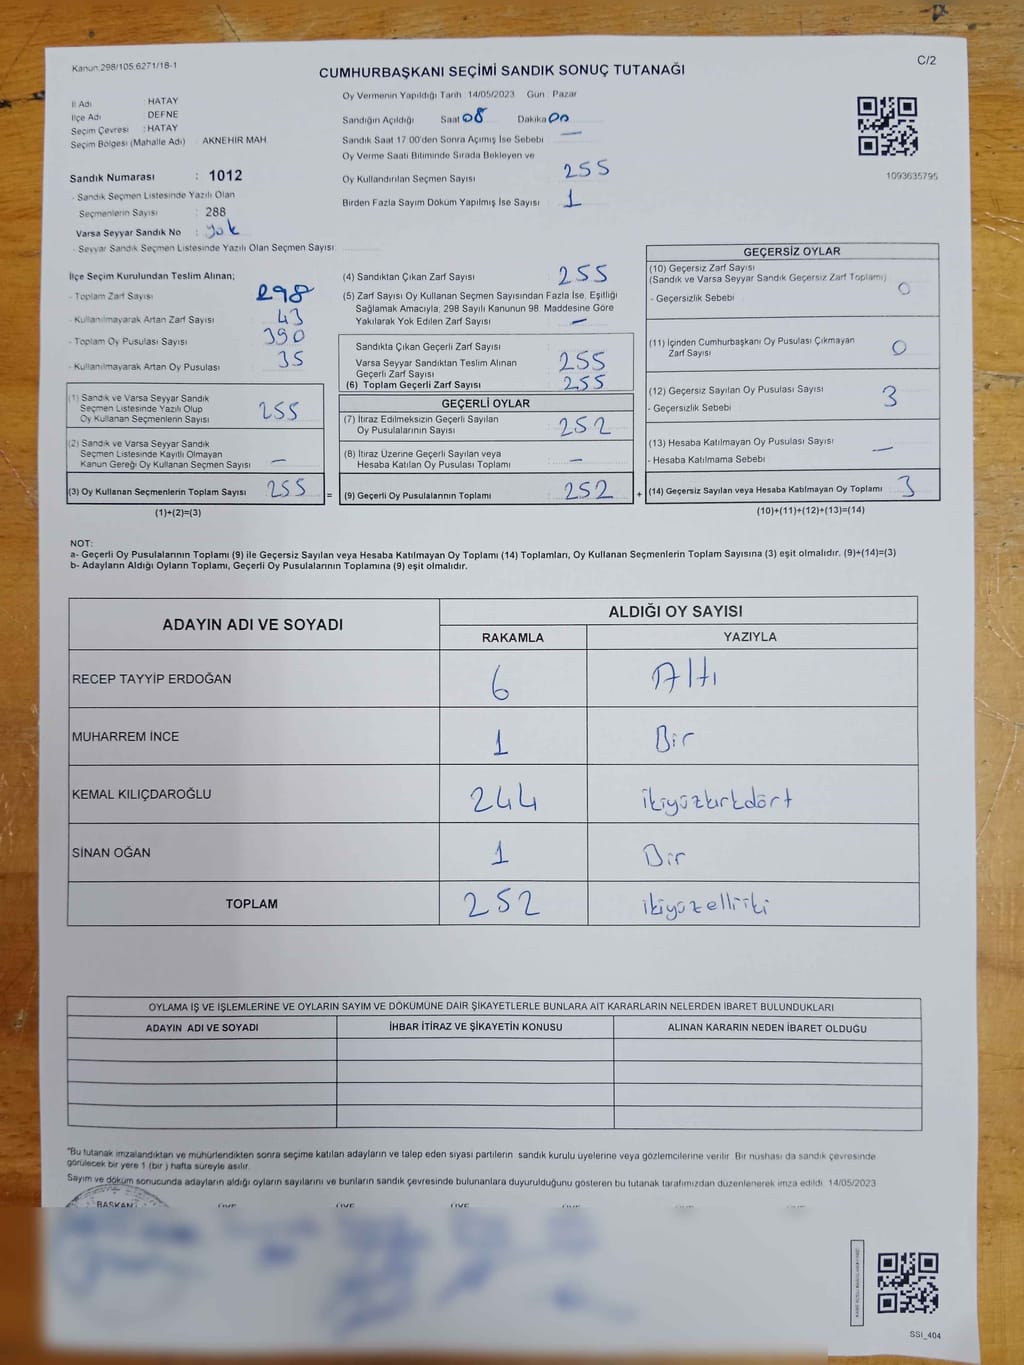 Kanun:298/105,6271/18-1
C/2
CUMHURBAŞKANI SEÇİMİ SANDIK SONUÇ TUTANAĞI
İl Adı : HATAY
İlçe Adı DEFNE
Seçim Çevresi : HATAY
Seçim Bölgesi (Mahalle Adı) AKNEHİR MAH
Sandık Numarası : 1012
- Sandık Seçmen Listesinde Yazılı Olan
Seçmenlerin Sayısı : 288
Varsa Seyyar Sandık No : yok
- Seyyar Sandık Seçmen Listesinde Yazılı Olan Seçmen Sayısı
Oy Vermenin Yapıldığı Tarih 14/05/2023 Gün : Pazar
Sandığın Açıldığı Saat 08 Dakika 00
Sandık Saat 17 00'den Sonra Açımış İse Sebebi —
Oy Verme Saati Bitiminde Sırada Bekleyen ve
Oy Kullandırılan Seçmen Sayısı 255
Birden Fazla Sayım Döküm Yapılmış İse Sayısı 1
1093635795
İlçe Seçim Kurulundan Teslim Alınan;
- Toplam Zarf Sayısı 298
- Kullanılmayarak Artan Zarf Sayısı 43
- Toplam Oy Pusulası Sayısı 390
- Kullanılmayarak Artan Oy Pusulası 35
(1) Sandık ve Varsa Seyyar Sandık
Seçmen Listesinde Yazılı Olup
Oy Kullanan Seçmenlerin Sayısı 255
(2) Sandık ve Varsa Seyyar Sandık
Seçmen Listesinde Kayıtlı Olmayan
Kanun Gereği Oy Kullanan Seçmen Sayısı —
(3) Oy Kullanan Seçmenlerin Toplam Sayısı 255
(1)+(2)=(3)
(4) Sandıktan Çıkan Zarf Sayısı 255
(5) Zarf Sayısı Oy Kullanan Seçmen Sayısından Fazla İse, Eşitliği
Sağlamak Amacıyla, 298 Sayılı Kanunun 98. Maddesine Göre
Yakılarak Yok Edilen Zarf Sayısı —
Sandıkta Çıkan Geçerli Zarf Sayısı
Varsa Seyyar Sandıktan Teslim Alınan
Geçerli Zarf Sayısı 255
(6) Toplam Geçerli Zarf Sayısı 255
GEÇERLİ OYLAR
(7) İtiraz Edilmeksizin Geçerli Sayılan
Oy Pusulalarının Sayısı 252
(8) İtiraz Üzerine Geçerli Sayılan veya
Hesaba Katılan Oy Pusulası Toplamı —
= (9) Geçerli Oy Pusulalarının Toplamı 252
GEÇERSİZ OYLAR
(10) Geçersiz Zarf Sayısı
(Sandık ve Varsa Seyyar Sandık Geçersiz Zarf Toplamı) 0
- Geçersizlik Sebebi
(11) İçinden Cumhurbaşkanı Oy Pusulası Çıkmayan
Zarf Sayısı 0
(12) Geçersiz Sayılan Oy Pusulası Sayısı 3
- Geçersizlik Sebebi
(13) Hesaba Katılmayan Oy Pusulası Sayısı —
- Hesaba Katılmama Sebebi
+ (14) Geçersiz Sayılan veya Hesaba Katılmayan Oy Toplamı 3
(10)+(11)+(12)+(13)=(14)
NOT:
a- Geçerli Oy Pusulalarının Toplamı (9) ile Geçersiz Sayılan veya Hesaba Katılmayan Oy Toplamı (14) Toplamları, Oy Kullanan Seçmenlerin Toplam Sayısına (3) eşit olmalıdır. (9)+(14)=(3)
b- Adayların Aldığı Oyların Toplamı, Geçerli Oy Pusulalarının Toplamına (9) eşit olmalıdır.
ADAYIN ADI VE SOYADI ALDIĞI OY SAYISI
RAKAMLA YAZIYLA
RECEP TAYYİP ERDOĞAN 6 Altı
MUHARREM İNCE 1 Bir
KEMAL KILIÇDAROĞLU 244 ikiyüzkırkdört
SİNAN OĞAN 1 Bir
TOPLAM 252 ikiyüzelliiki
OYLAMA İŞ VE İŞLEMLERİNE VE OYLARIN SAYIM VE DÖKÜMÜNE DAİR ŞİKAYETLERLE BUNLARA AİT KARARLARIN NELERDEN İBARET BULUNDUKLARI
ADAYIN ADI VE SOYADI İHBAR İTİRAZ VE ŞİKAYETİN KONUSU ALINAN KARARIN NEDEN İBARET OLDUĞU
"Bu tutanak imzalandıktan ve mühürlendikten sonra seçime katılan adayların ve talep eden siyasi partilerin sandık kurulu üyelerine veya gözlemcilerine verilir. Bir nüshası da sandık çevresinde
görülecek bir yere 1 (bir ) hafta süreyle asılır.
Sayım ve döküm sonucunda adayların aldığı oyların sayılarını ve bunların sandık çevresinde bulunanlara duyurulduğunu gösteren bu tutanak tarafımızdan düzenlenerek imza edildi. 14/05/2023
BAŞKAN ÜYE ÜYE ÜYE ÜYE
SSI_404